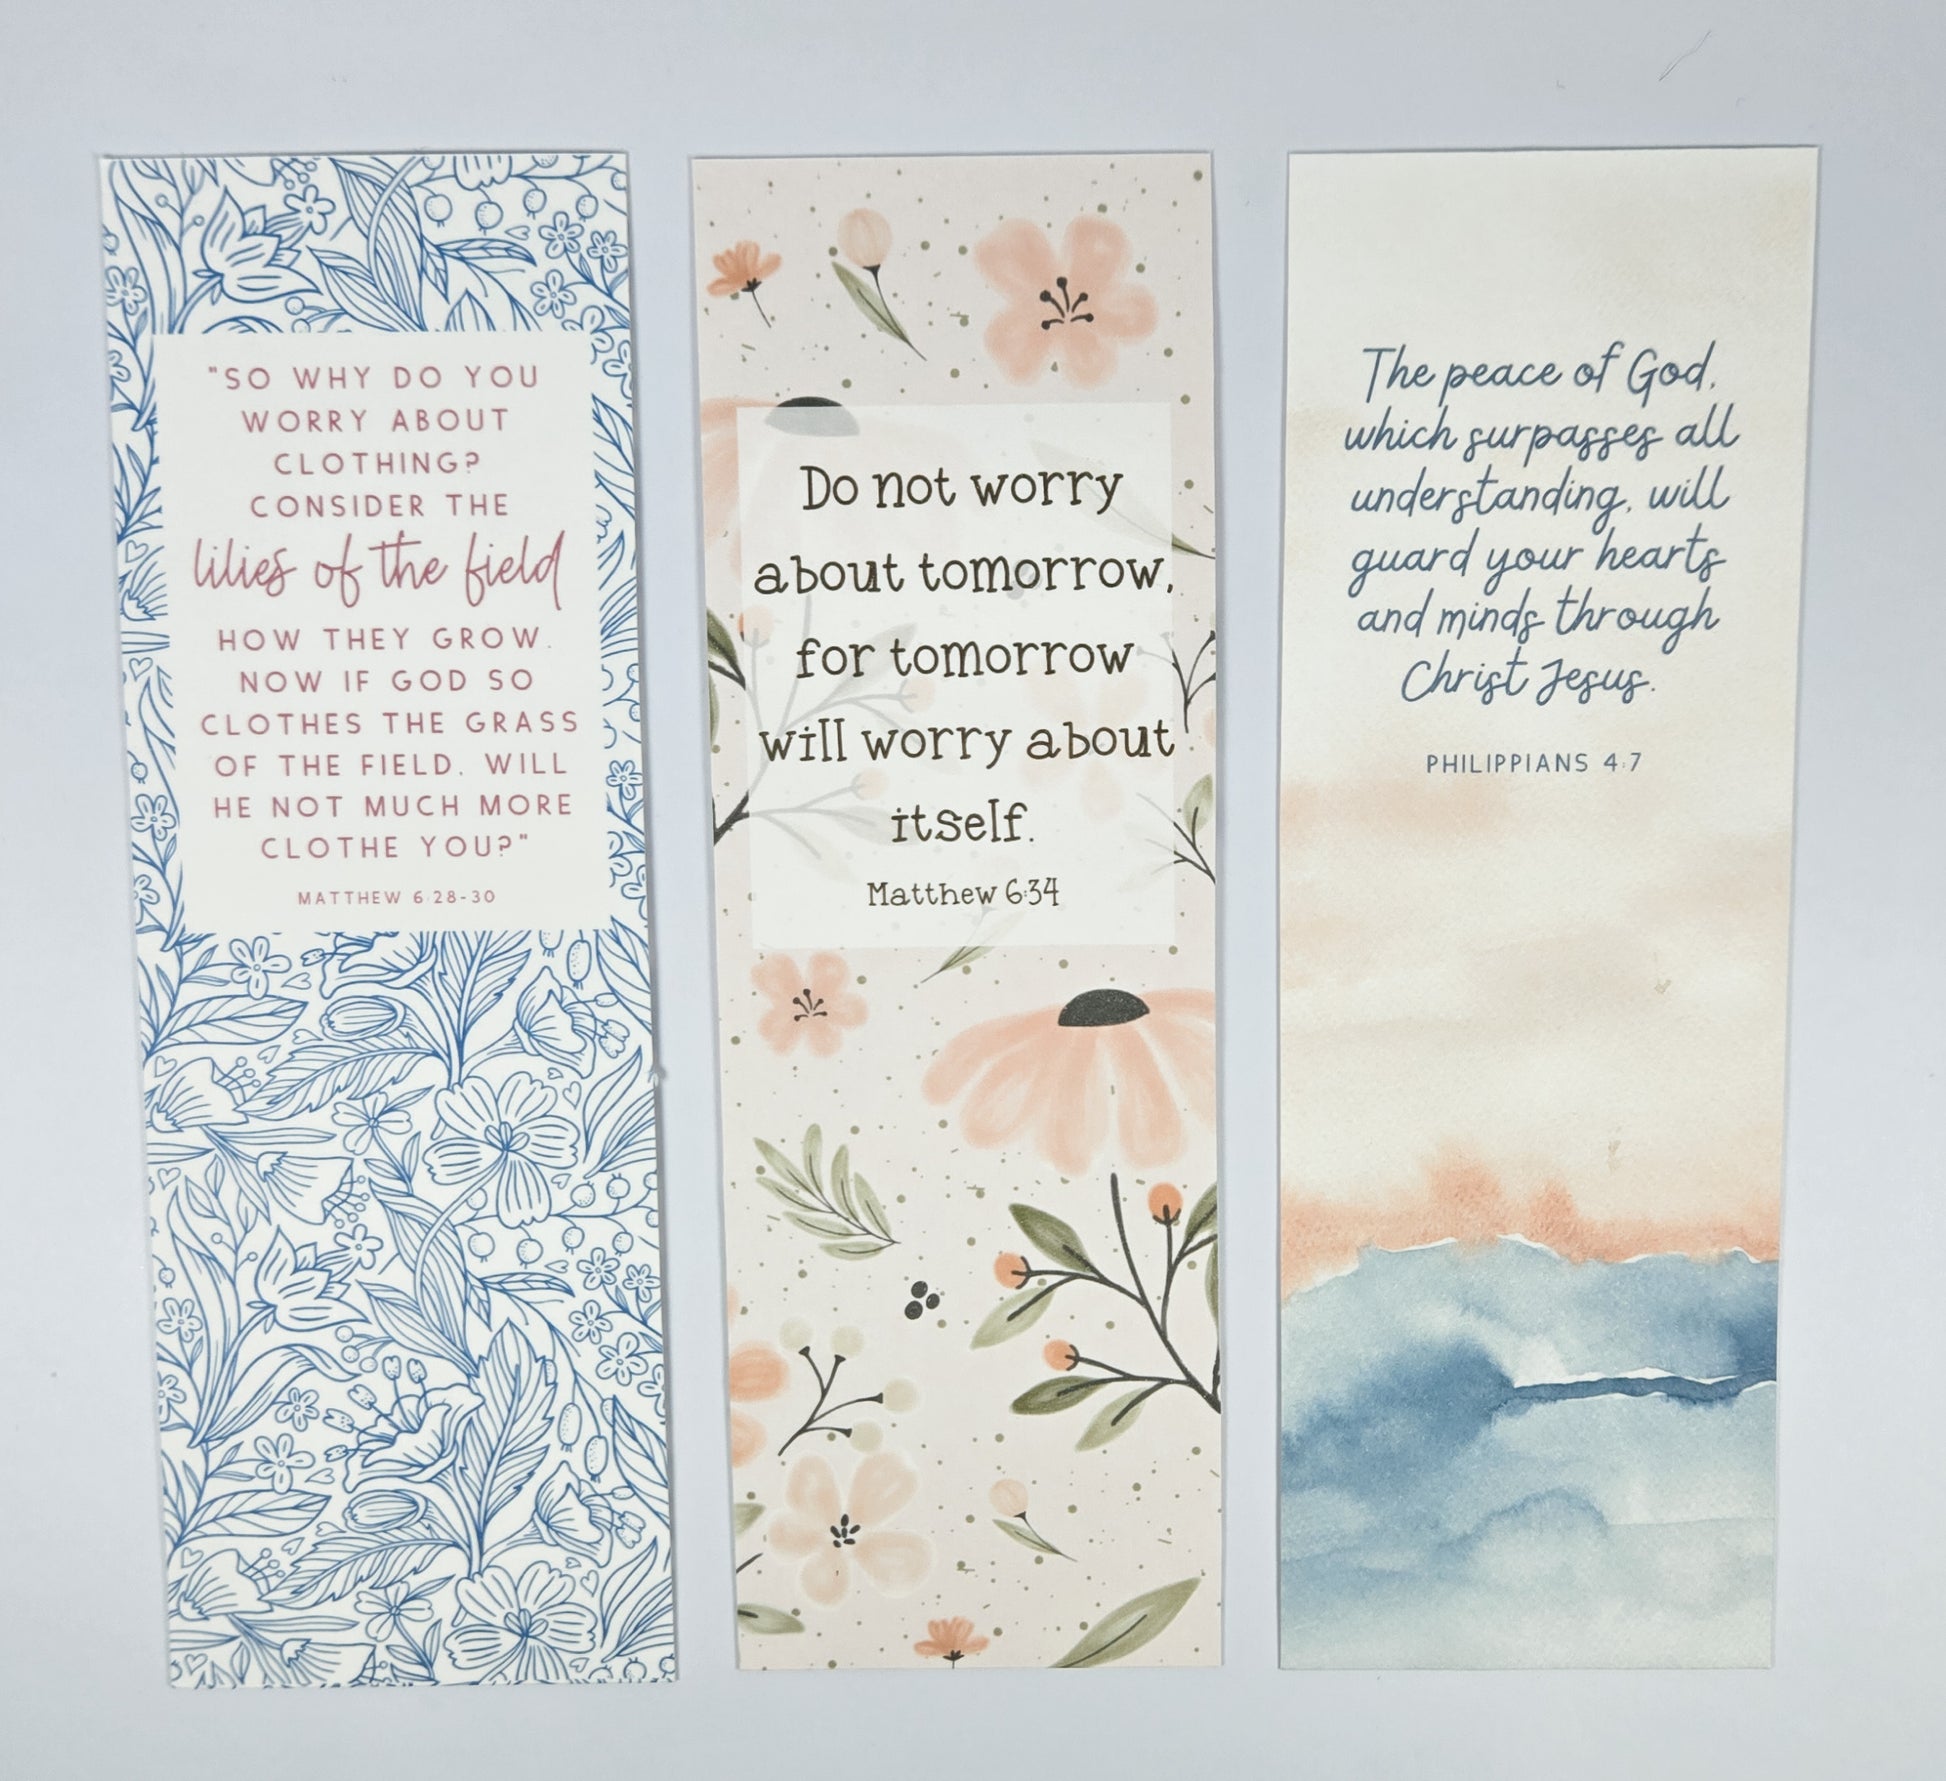 "SO WHY DO YOU
WORRY ABOUT
CLOTHING?
CONSIDER THE
lilies of the field
HOW THEY GROW.
NOW IF GOD SO
CLOTHES THE GRASS
OF THE FIELD, WILL
HE NOT MUCH MORE
CLOTHE YOU?"
MATTHEW 6:28-30
Do not worry
about tomorrow,
for tomorrow
will worry about
itself.
Matthew 6:34
The peace of God,
which surpasses all
understanding, will
guard your hearts
and minds through
Christ Jesus.
PHILIPPIANS 4:7